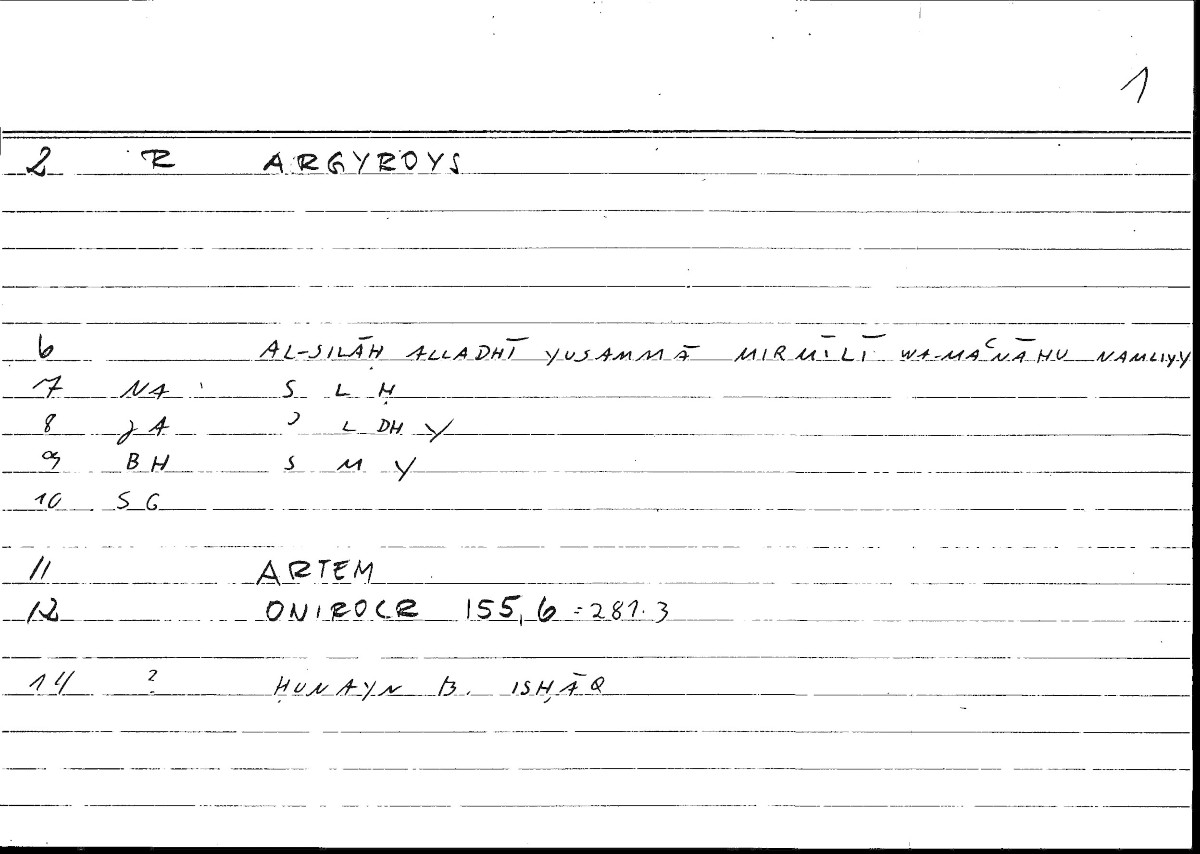 1
2 R ARGYROYS
6 AL-SILĀḤ ALLADHĪ YUSAMMĀ MIRMĪLĪ WA-MAʿNĀHU NAMLIYY
7 NA S L Ḥ
8 JA ʾ L DH Y
9 BH S M Y
10 SG
11 ARTEM
12 ONIROCR 155,6 = 281.3
14 ? ḤUNAYN B. ISḤĀQ